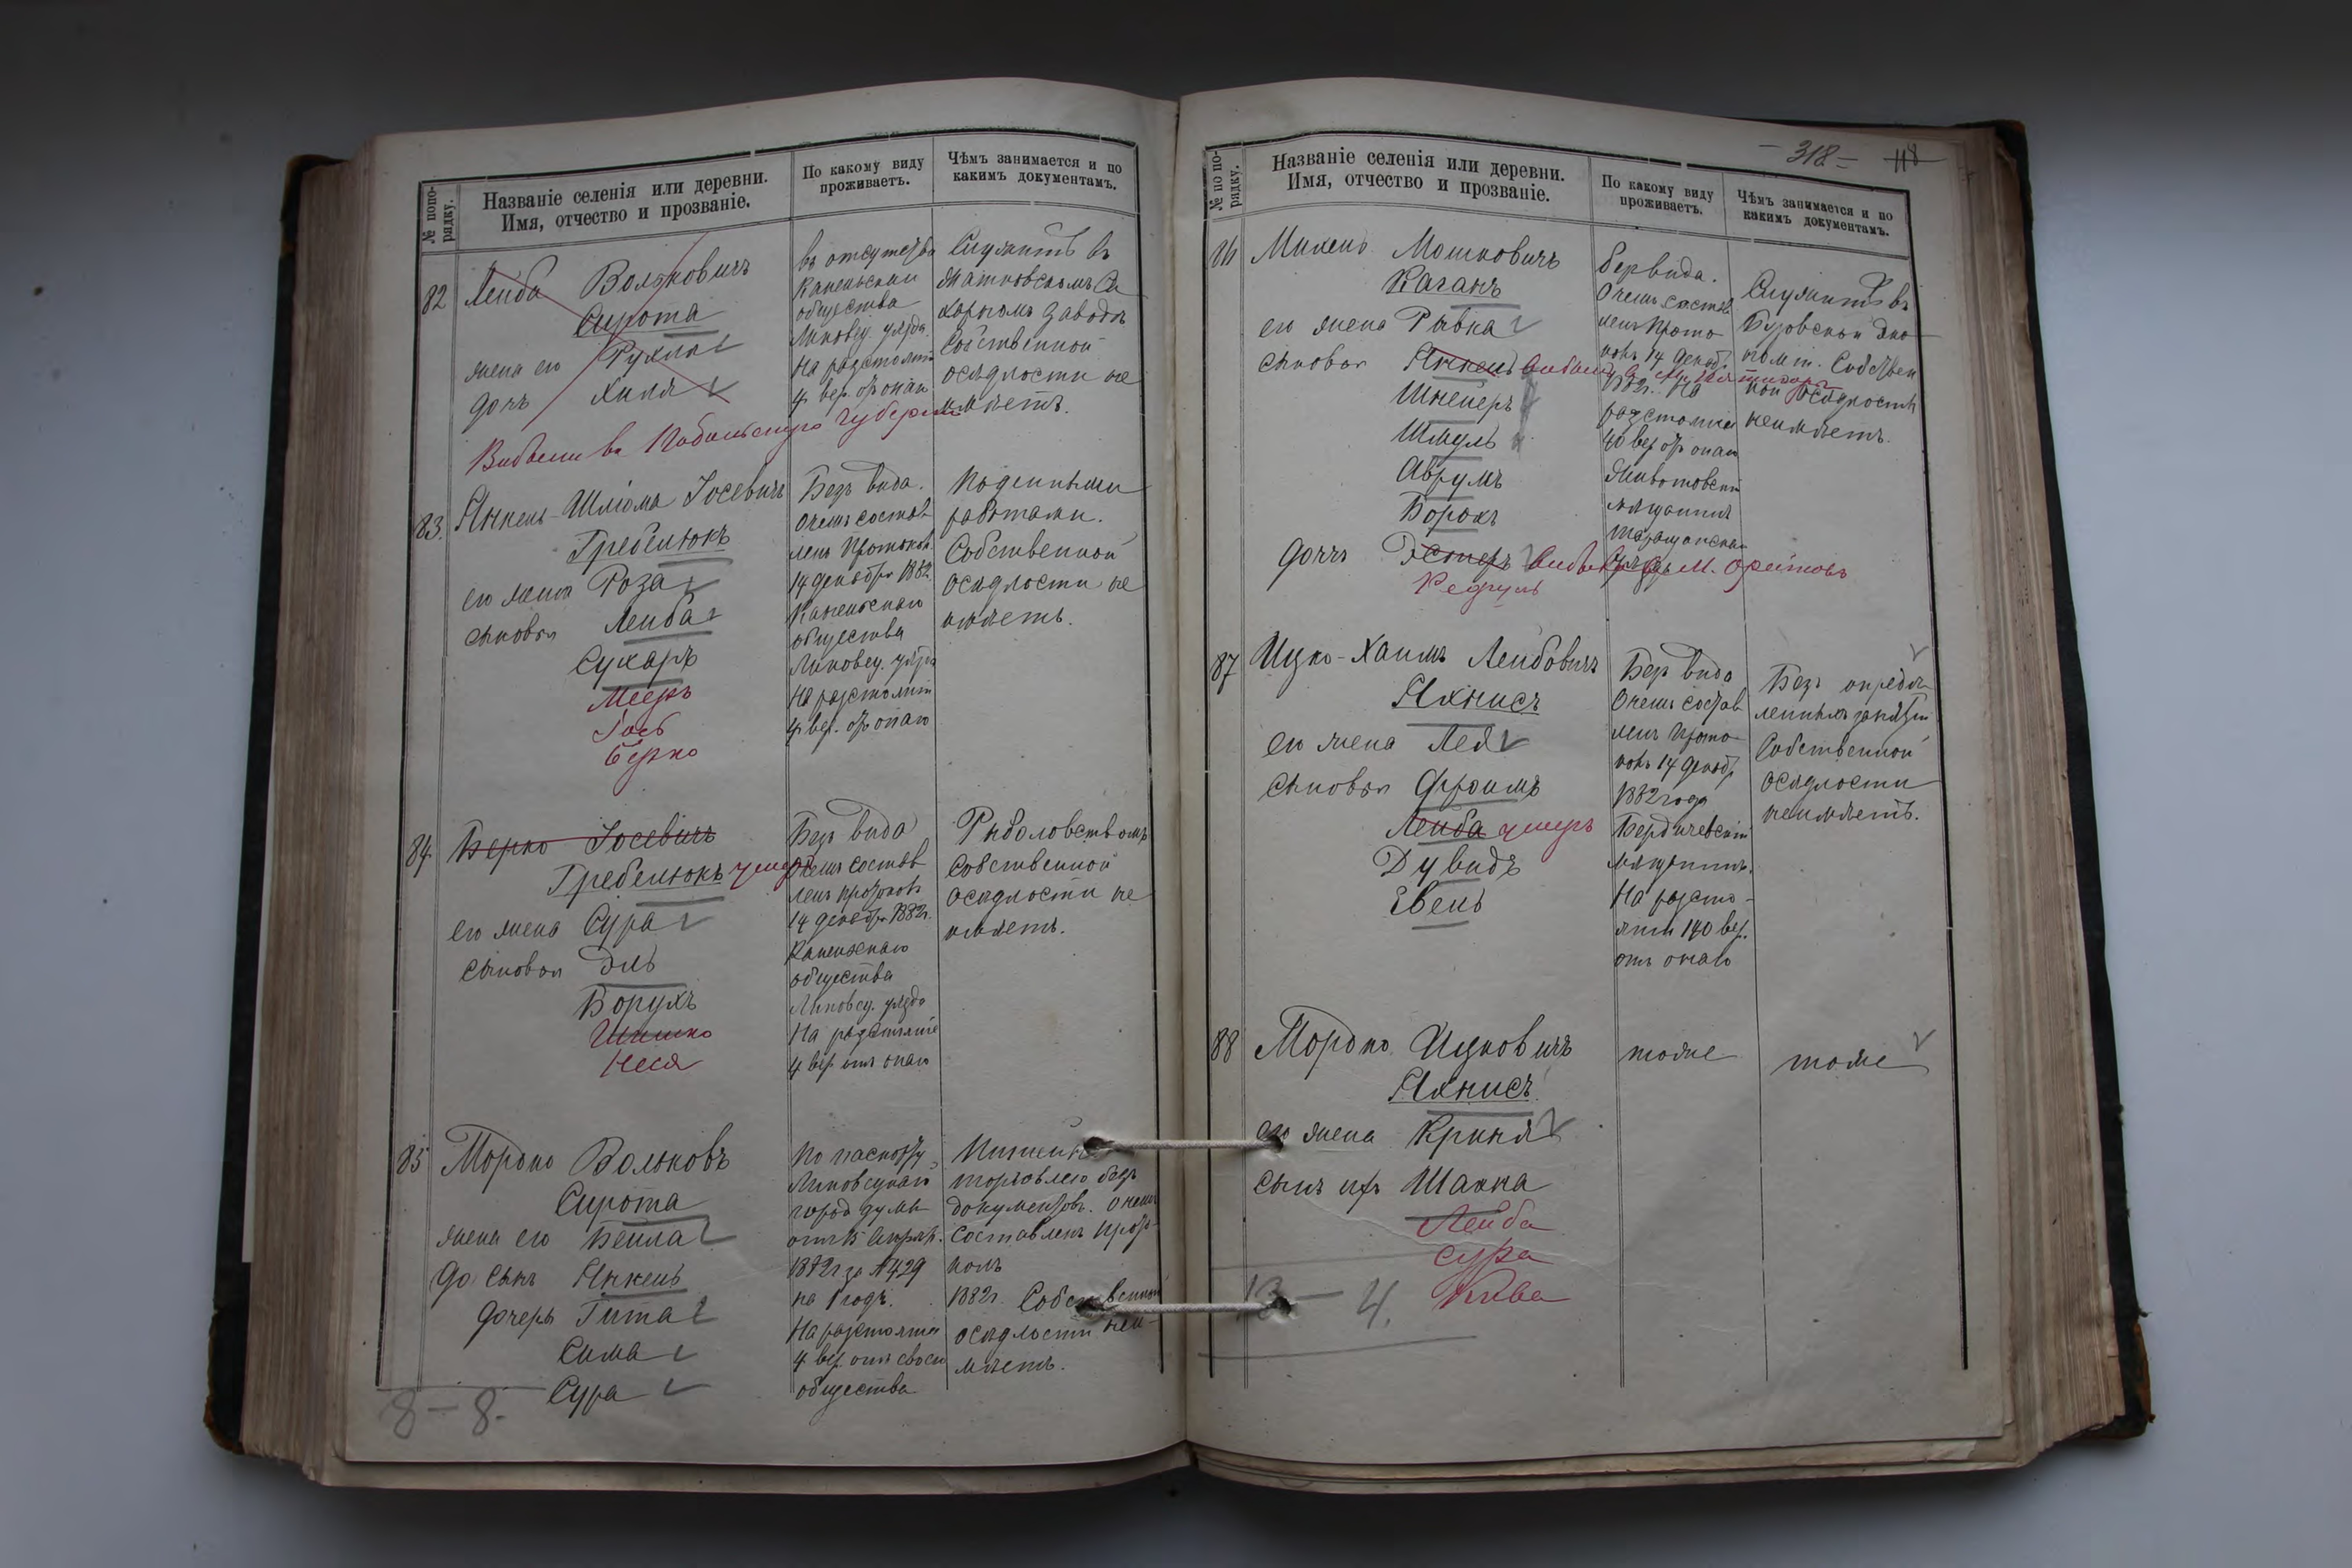 № попо-
рядку.
Названіе селенія или деревни.
Имя, отчество и прозваніе.
По какому виду
проживаетъ.
Чѣмъ занимается и по
какимъ документамъ.
82 Лейба Вольковичъ
Сирота
жена его Рухля
дочь Хиля
въ отсутств
общества
Липовец. уѣзда.
на разстояніи
4 вер. отъ онаго
Служитъ въ
харномъ заводѣ
Собственной
осѣдлости не
имѣетъ.
Выбыли въ Подольскую губернію
83. Янкель-Шлiома Іосевичъ
Гребенюкъ
его жена Роза
сыновья Лейба
Сухаръ
Мееръ
Іось
Берко
Безъ вида.
О чемъ состав
ленъ протоколъ
14 декабря 1882.
общества
Липовец. уѣзда
на разстояніи
4 вер. отъ онаго
поденными
работами.
Собственной
осѣдлости не
имѣетъ.
84. Берко Іосевичъ
Гребенюкъ умеръ
его жена Сура
сыновья Эль
Борухъ
Шимко
Неся
Безъ вида
О чемъ состав
ленъ протоколъ
14 декабр. 1882г.
общества
Липовец. уѣзда
На разстояніи
4 вер отъ онаго
Рыболовствомъ
Собственной
осѣдлости не
имѣетъ.
85 Мордко Вольковъ
Сирота
жена его Бейла
До сынъ Янкель
дочерь Гита
Сима
Сура
8 - 8.
По паспорту
Липовецкаго
город думы
отъ 15 апрѣл.
1882г за № 429
на 1 годъ.
На разстояніи
4 вер. отъ своего
общества
торговлею безъ
документовъ. О чемъ
составленъ прото-
колъ
1882г. Собственной
осѣдлости неи-
мѣетъ.
- 318 - 118
№ по по-
рядку.
Названіе селенія или деревни.
Имя, отчество и прозваніе.
По какому виду
проживаетъ.
Чѣмъ занимается и по
какимъ документамъ.
86 Михель Мошковичъ
Каганъ
его жена Ривка
сыновья Янкель
Шнеиеръ
Шмуль
Аврумъ
Борохъ
дочь Эстеръ
безъ вида.
О чемъ состав
ленъ прото-
колъ 14 декаб.
1882г. На
разстояніи
40 вер отъ онаго
Животовскій
мѣщанинъ
Таращанскаго
Служитъ въ
Буровской эко-
номіи. Собствен
ной осѣдлости
неимѣетъ.
87 Ицко-Хаимъ Лейбовичъ
Яхнисъ
его жена Лея
сыновья Фроимъ
Лейба умеръ
Дувидъ
Евель
Безъ вида
О чемъ состав
ленъ прото-
колъ 14 декаб
1882 года
Бердичевскій
мѣщанинъ.
На разсто-
яніи 140 вер.
отъ онаго
Безъ опредѣ-
ленныхъ занятій
Собственной
осѣдлости
неимѣетъ.
88 Мордко Ицковичъ
Яхнисъ
его жена Криня
сынъ ихъ Шакна
Лейба
Сура
Кива
тоже
тоже
13 - 4.